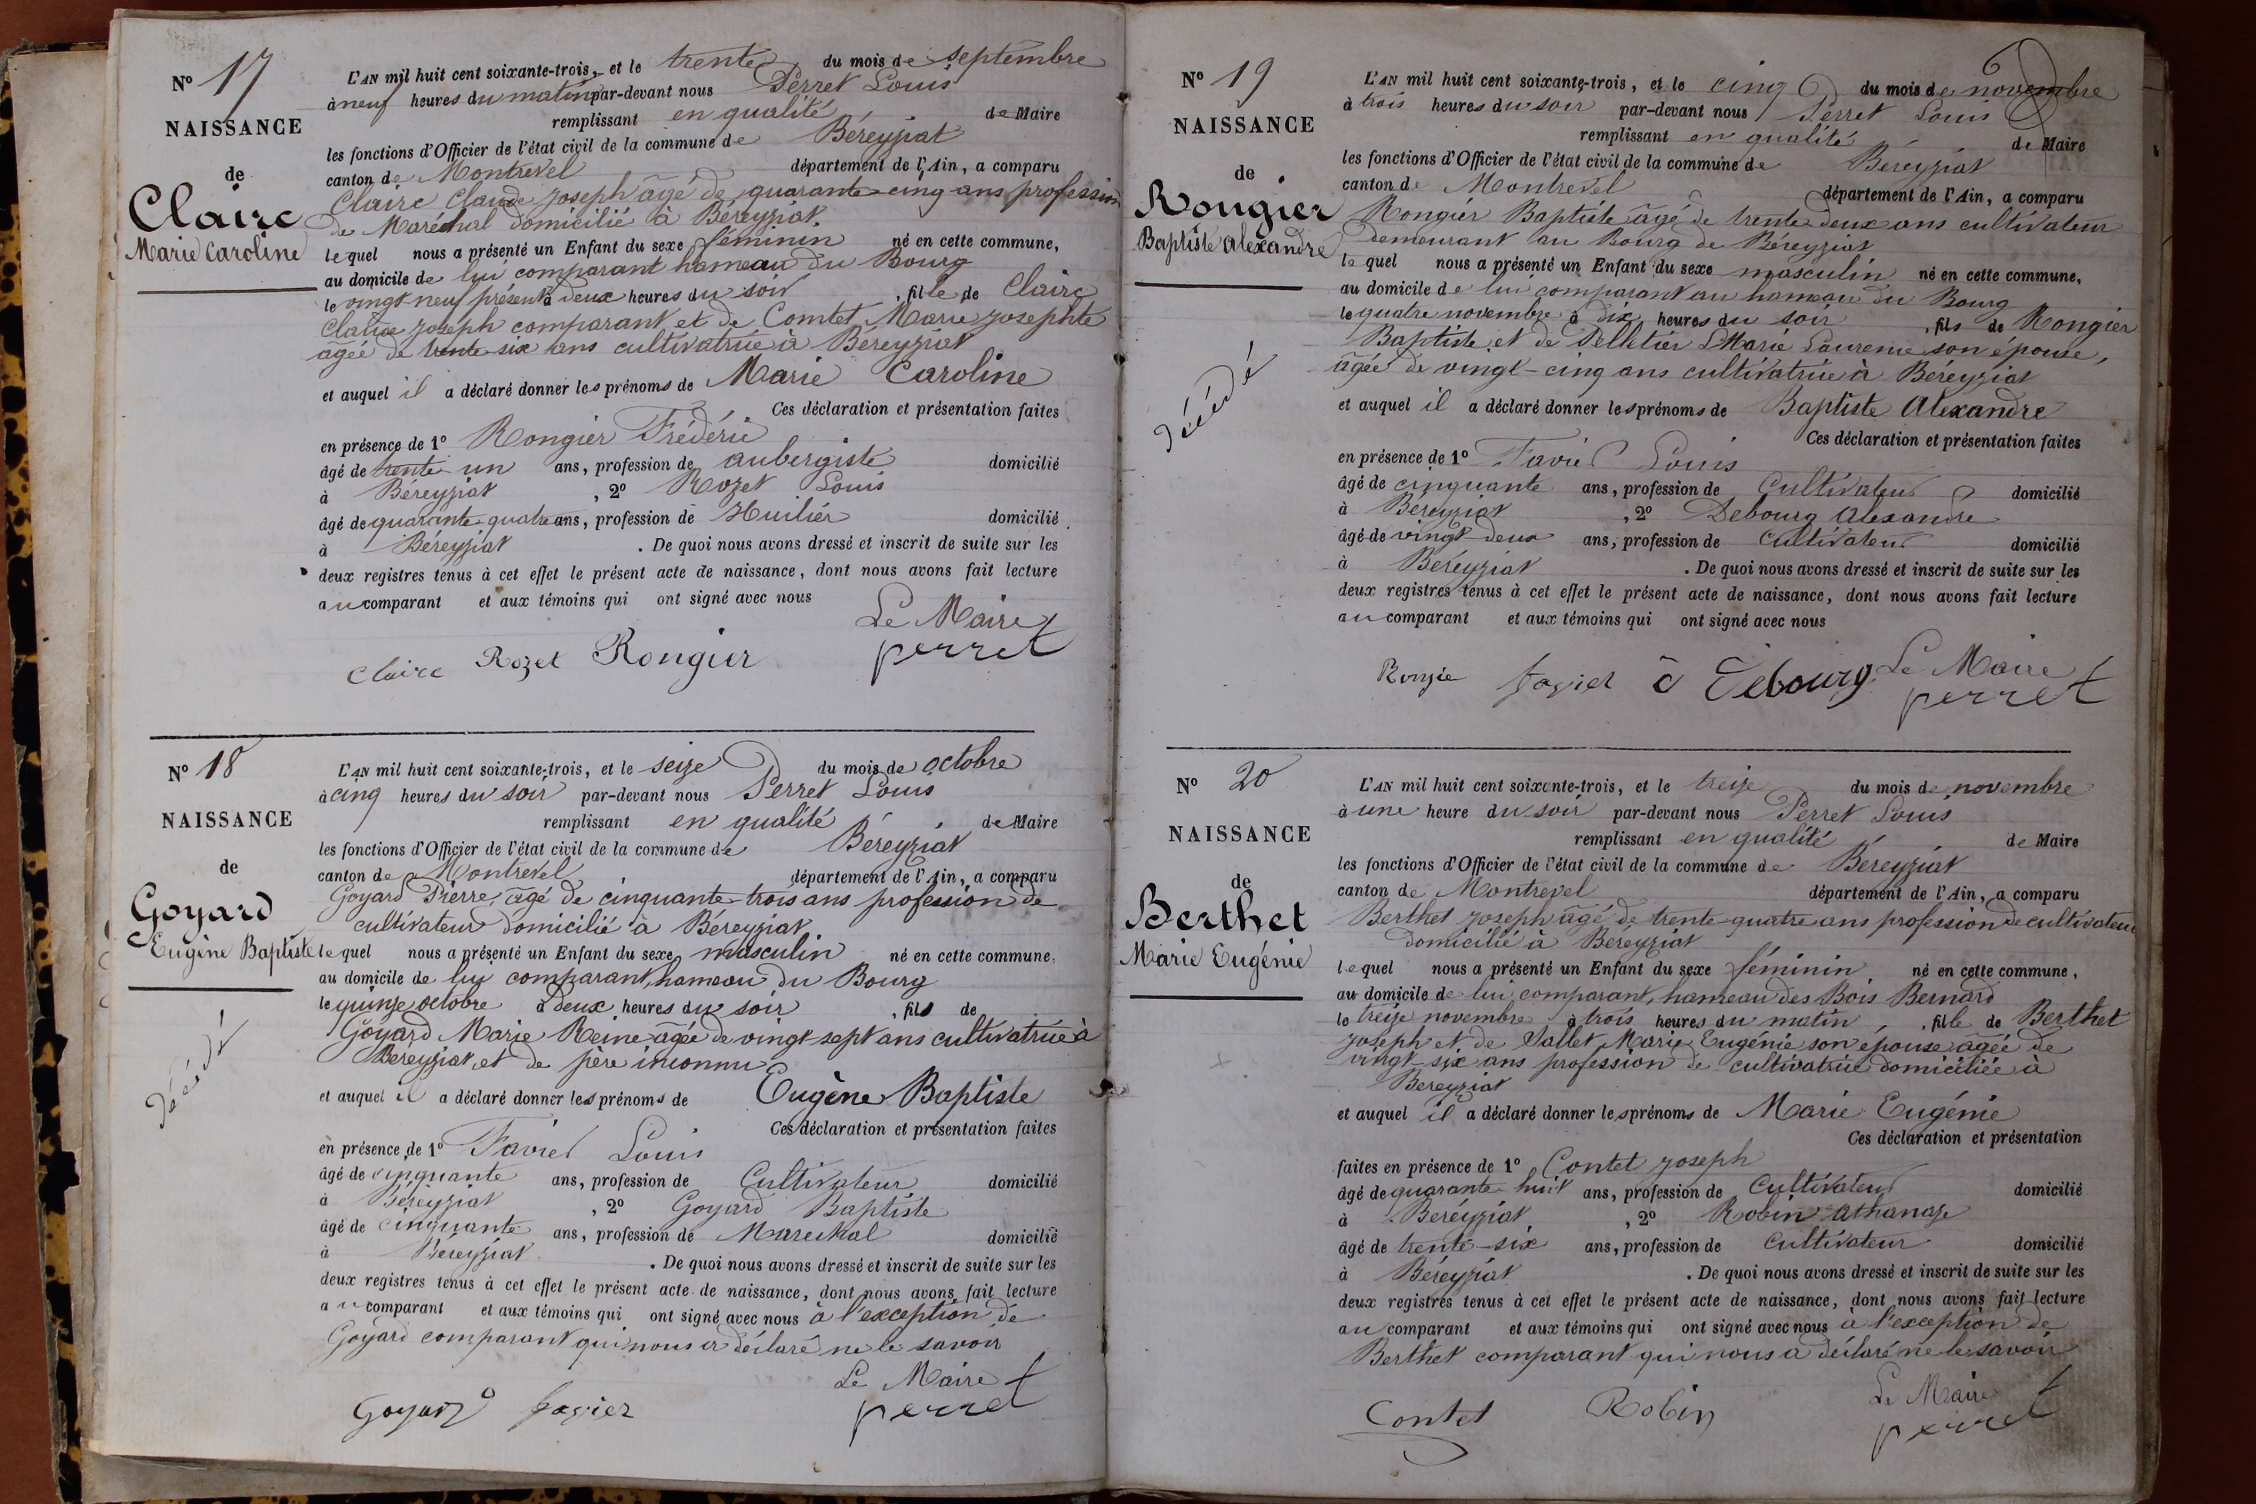 N° 17
NAISSANCE
de
Claire
Marie Caroline
L'AN mil huit cent soixante-trois, et le trente du mois de septembre
à neuf heures du matin par-devant nous Perret Louis
remplissant en qualité de Maire
les fonctions d'Officier de l'état civil de la commune de Béreyziat
canton de Montrevel département de l'Ain, a comparu
Claire Claude Joseph âgé de quarante-cinq ans profession
de Maréchal domicilié à Béreyziat
lequel nous a présenté un Enfant du sexe féminin né en cette commune,
au domicile de lui comparant hameau du Bourg
le vingt neuf présent à deux heures du soir , fille de Claire
Claude Joseph comparant et de Comtet Marie Josephte
âgée de trente six ans cultivatrice à Béreyziat
et auquel il a déclaré donner les prénoms de Marie Caroline
Ces déclaration et présentation faites
en présence de 1° Rongier Frédéric
âgé de trente un ans, profession de aubergiste domicilié
à Béreyziat , 2° Rozet Louis
âgé de quarante quatre ans, profession de Huilier domicilié
à Béreyziat . De quoi nous avons dressé et inscrit de suite sur les
deux registres tenus à cet effet le présent acte de naissance, dont nous avons fait lecture
au comparant et aux témoins qui ont signé avec nous
Le Maire
Claire Rozet Rongier perret
N° 18
NAISSANCE
de
Goyard
Eugène Baptiste
décédé
L'AN mil huit cent soixante-trois, et le seize du mois de octobre
à cinq heures du soir par-devant nous Perret Louis
remplissant en qualité de Maire
les fonctions d'Officier de l'état civil de la commune de Béreyziat
canton de Montrevel département de l'Ain, a comparu
Goyard Pierre, âgé de cinquante trois ans profession de
cultivateur domicilié à Béreyziat
lequel nous a présenté un Enfant du sexe masculin né en cette commune,
au domicile de lui comparant, hameau du Bourg
le quinze octobre à deux heures du soir , fils de
Goyard Marie Reine âgée de vingt sept ans cultivatrice à
Béreyziat et de père inconnu
et auquel il a déclaré donner les prénoms de Eugène Baptiste
Ces déclaration et présentation faites
en présence de 1° Favier Louis
âgé de cinquante ans, profession de Cultivateur domicilié
à Béreyziat , 2° Goyard Baptiste
âgé de cinquante ans, profession de Marechal domicilié
à Béreyziat . De quoi nous avons dressé et inscrit de suite sur les
deux registres tenus à cet effet le présent acte de naissance, dont nous avons fait lecture
au comparant et aux témoins qui ont signé avec nous à l'exception de
Goyard comparant qui nous a déclaré ne le savoir
Le Maire
Goyard favier perret
N° 19
NAISSANCE
de
Rongier
Baptiste Alexandre
décédé
L'AN mil huit cent soixante-trois, et le cinq du mois de novembre
à trois heures du soir par-devant nous Perret Louis
remplissant en qualité de Maire
les fonctions d'Officier de l'état civil de la commune de Béreyziat
canton de Montrevel département de l'Ain, a comparu
Rongier Baptiste âgé de trente deux ans cultivateur
demeurant au Bourg de Béreyziat
lequel nous a présenté un Enfant du sexe masculin né en cette commune,
au domicile de lui comparant au hameau du Bourg
le quatre novembre à dix heures du soir , fils de Rongier
Baptiste et de Pelletier Marie Laurence son épouse,
âgée de vingt-cinq ans cultivatrice à Béreyziat
et auquel il a déclaré donner les prénoms de Baptiste Alexandre
Ces déclaration et présentation faites
en présence de 1° Favier Louis
âgé de cinquante ans, profession de Cultivateur domicilié
à Béreyziat , 2° Debourg Alexandre
âgé de vingt-deux ans, profession de cultivateur domicilié
à Béreyziat . De quoi nous avons dressé et inscrit de suite sur les
deux registres tenus à cet effet le présent acte de naissance, dont nous avons fait lecture
au comparant et aux témoins qui ont signé avec nous
Le Maire
favier Debourg perret
N° 20
NAISSANCE
de
Berthet
Marie Eugénie
L'AN mil huit cent soixante-trois, et le treize du mois de novembre
à une heure du soir par-devant nous Perret Louis
remplissant en qualité de Maire
les fonctions d'Officier de l'état civil de la commune de Béreyziat
canton de Montrevel département de l'Ain, a comparu
Berthet Joseph âgé de trente quatre ans profession de cultivateur
domicilié à Béreyziat
lequel nous a présenté un Enfant du sexe féminin né en cette commune,
au domicile de lui comparant, hameau des Bois Bernard
le treize novembre à trois heures du matin , fille de Berthet
Joseph et de Vallet Marie Eugénie son épouse âgée de
vingt-six ans profession de cultivatrice domiciliée à
Béreyziat
et auquel il a déclaré donner les prénoms de Marie Eugénie
Ces déclaration et présentation
faites en présence de 1° Contet Joseph
âgé de quarante huit ans, profession de Cultivateur domicilié
à Béreyziat , 2° Robin Athanaze
âgé de trente-six ans, profession de Cultivateur domicilié
à Béreyziat . De quoi nous avons dressé et inscrit de suite sur les
deux registres tenus à cet effet le présent acte de naissance, dont nous avons fait lecture
au comparant et aux témoins qui ont signé avec nous à l'exception de
Berthet comparant qui nous a déclaré ne le savoir
Le Maire
Contet Robin perret